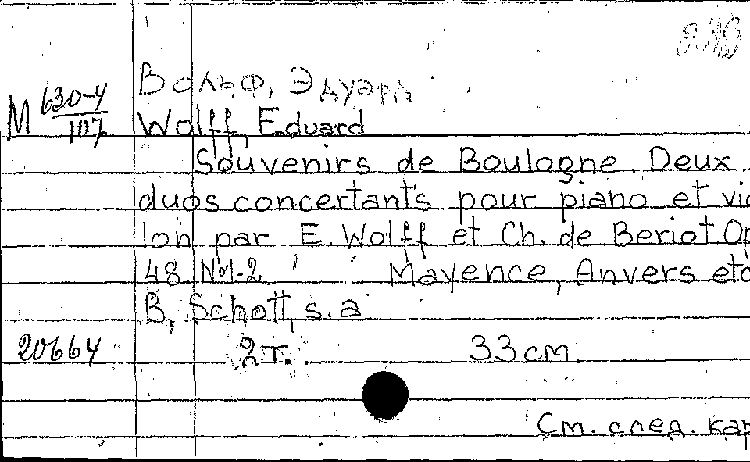 Вольф, Эдуард
М 630-4/107
Wolff, Eduard
Souvenirs de Boulogne Deux
duos concertants pour piano et vio
lon par E. Wolff et Ch. de Beriot Op
48 №1-2 Mayence, Anvers etc
B. Schott, s. a
20664 2 т. 33 см.
См. след. кар